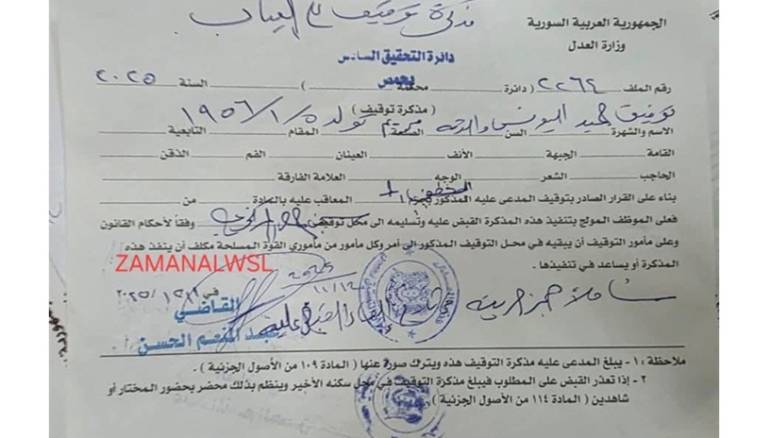 مذكرة توقيف
الجمهورية العربية السورية
وزارة العدل
دائرة التحقيق السادس
بحمص
رقم الملف ٢٢٦٤ ( دائرة محكمة ) السنة ٢٠٢٥
( مذكرة توقيف )
توفيق اليونس والدته مريم تولد ١٩٥٦/١/٥
الاسم والشهرة السن الصنعة المقام التابعية
القامة الجبهة الأنف العينان الفم الذقن
الحاجب الشعر الوجه العلامة الفارقة
بناء على القرار الصادر بتوقيف المدعى عليه المذكور بجرم الخطف المعاقب عليه بالمادة من
فعلى الموظف المولج بتنفيذ هذه المذكرة القبض عليه وتسليمه الى محل توقيف وفقاً لأحكام القانون
وعلى مأمور التوقيف أن يبقيه في محل التوقيف المذكور الى أمر وكل مأمور من مأموري القوة المسلحة مكلف أن ينفذ هذه
المذكرة أو يساعد في تنفيذها .
ZAMANALWSL
في ٢٠٢٥
القاضي
عبد المنعم الحسن
ملاحظة : ١ - يبلغ المدعى عليه مذكرة التوقيف هذه ويترك صورة عنها ( المادة ١٠٩ من الأصول الجزئية ) .
٢ - إذا تعذر القبض على المطلوب فيبلغ مذكرة التوقيف في محل سكنه الأخير وينظم بذلك محضر بحضور المختار أو
شاهدين ( المادة ١١٤ من الأصول الجزئية ) .